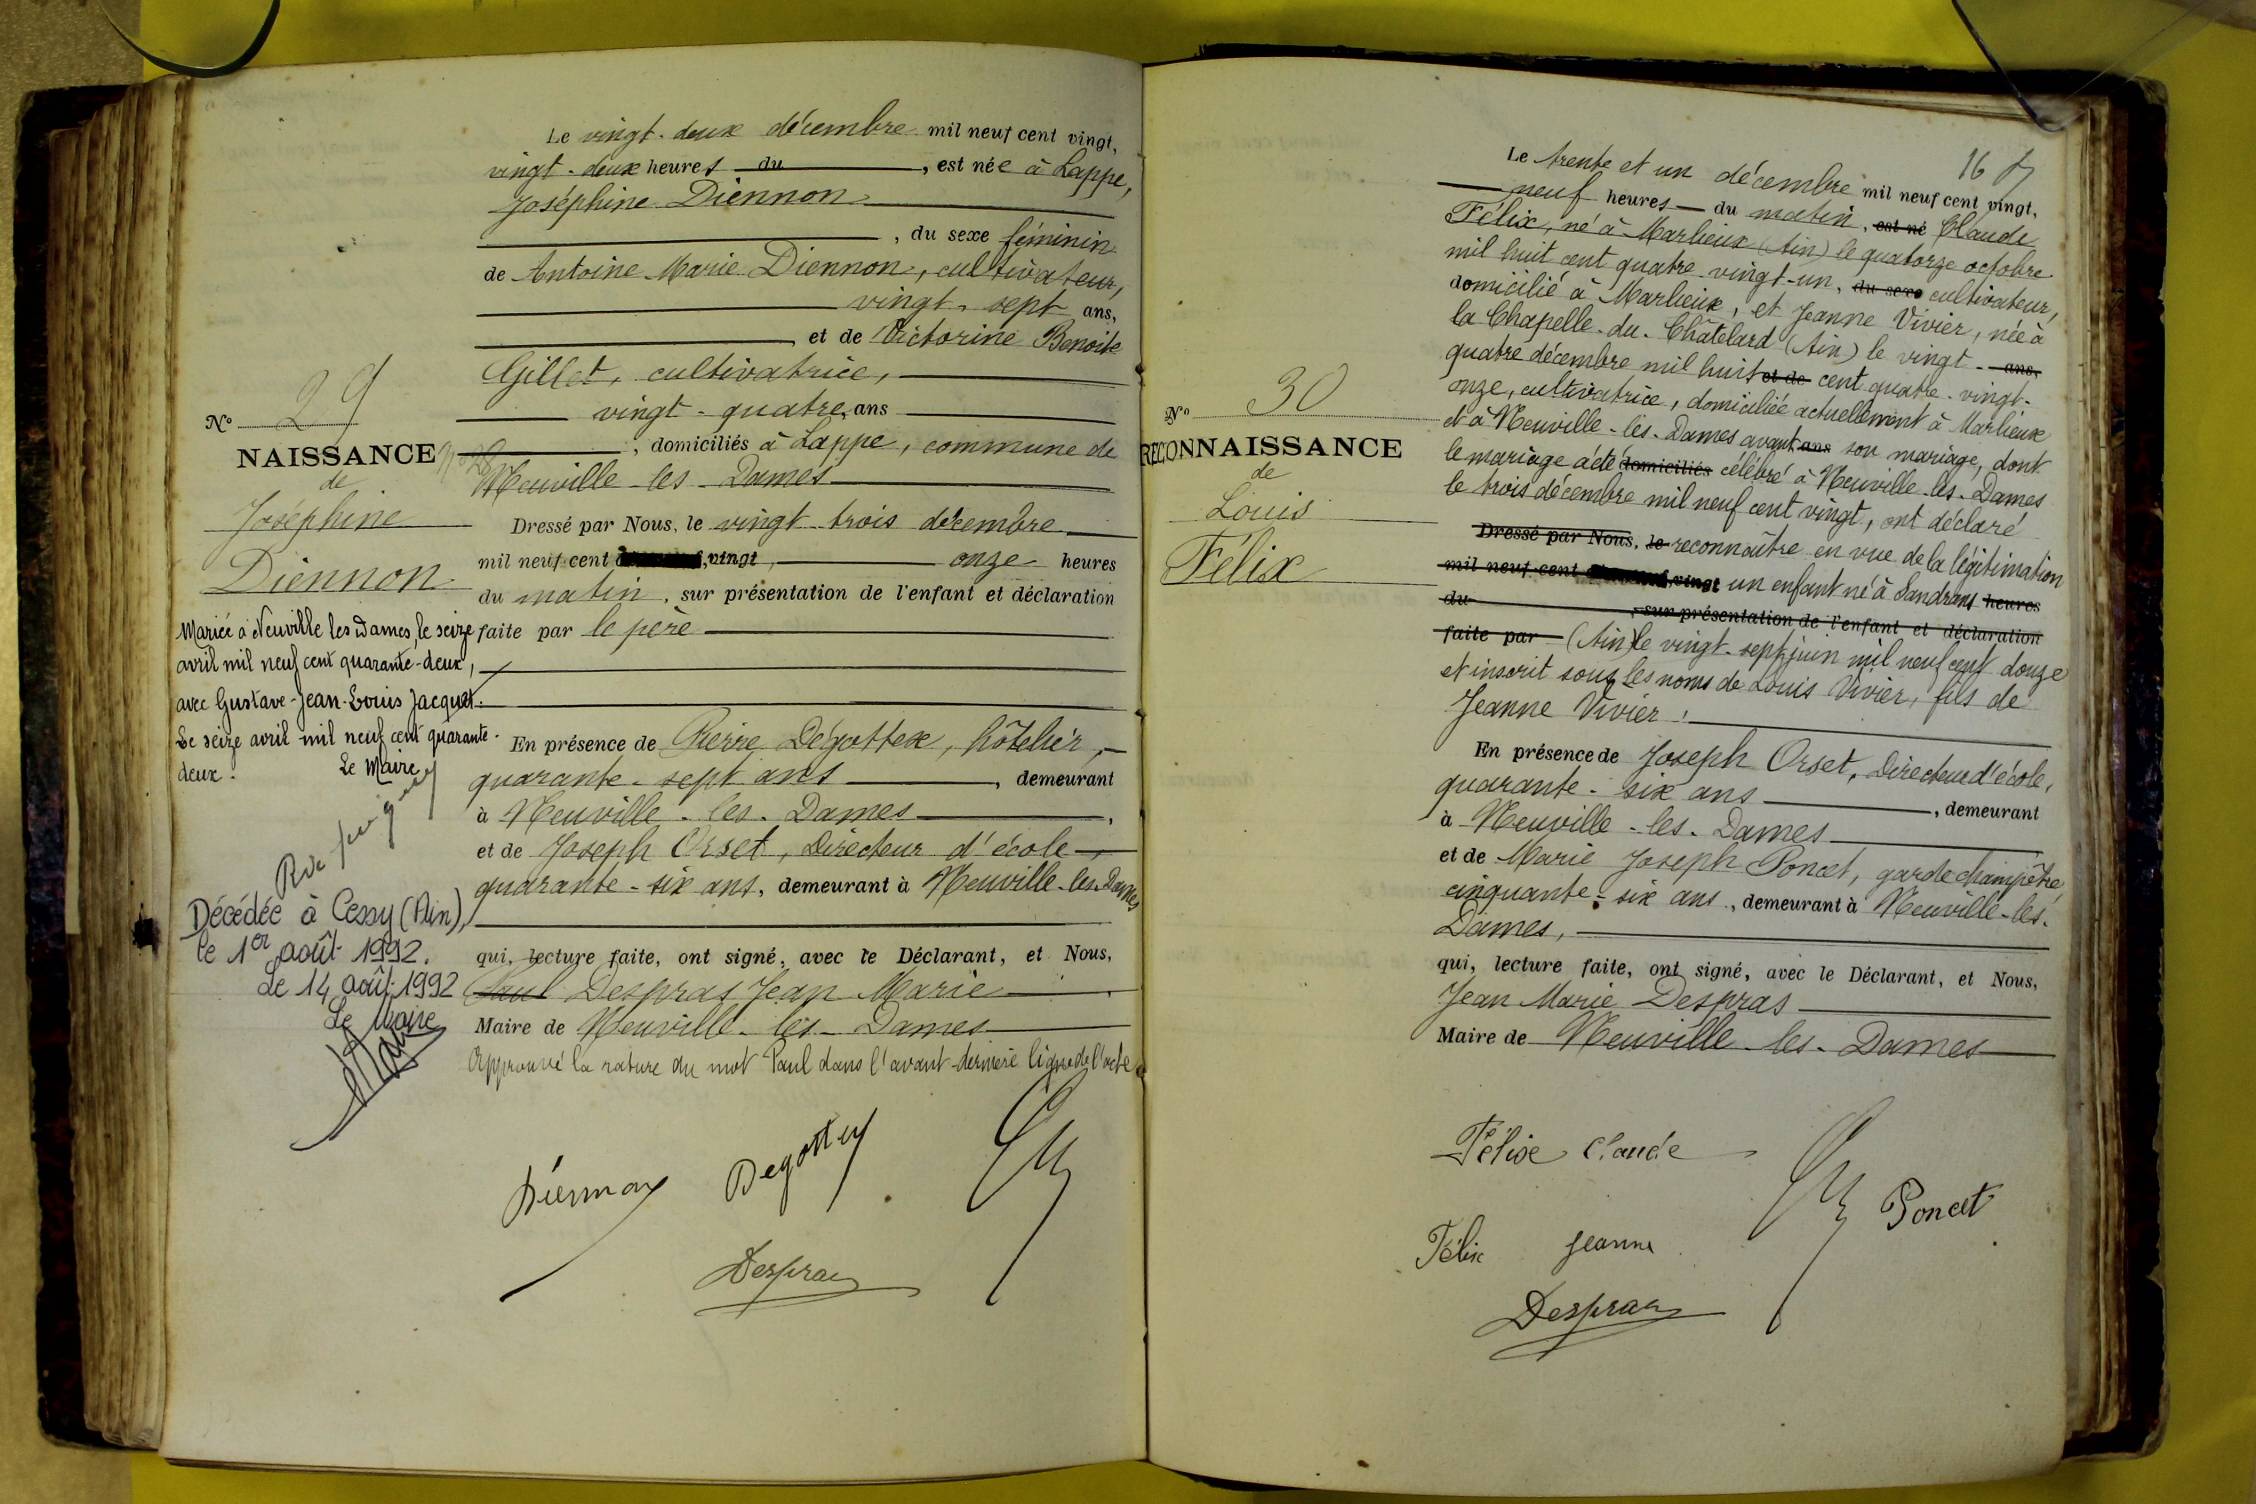 Le vingt-deux décembre mil neuf cent vingt,
vingt-deux heures du, est née à Lappe,
Joséphine Diennon
, du sexe féminin
de Antoine Marie Diennon, cultivateur,
vingt-sept ans,
et de Victorine Benoite
Gillet, cultivatrice,
vingt-quatre ans
, domiciliés à Lappe, commune de
Neuville-les-Dames
Dressé par Nous, le vingt-trois décembre
mil neuf cent vingt, onze heures
du matin, sur présentation de l'enfant et déclaration
faite par le père
En présence de Pierre Dégottex, hôtelier,
quarante-sept ans, demeurant
à Neuville-les-Dames,
et de Joseph Orset, Directeur d'école,
quarante-six ans, demeurant à Neuville-les-Dames,
qui, lecture faite, ont signé, avec le Déclarant, et Nous,
Paul Despras Jean Marie
Maire de Neuville-les-Dames
Approuvé la rature du mot Paul dans l'avant-dernière ligne de l'acte
Diennon
Degottex
Despras
N° 29
NAISSANCE
de
Joséphine
Diennon
Mariée à Neuville les Dames, le seize
avril mil neuf cent quarante-deux,
avec Gustave-Jean-Louis Jacquet.
Le seize avril mil neuf cent quarante-
deux.
Le Maire
Décédée à Cessy (Ain),
le 1er août 1992.
Le 14 août 1992
Le Maire
16
N° 30
RECONNAISSANCE
de
Louis
Félix
Le trente et un décembre mil neuf cent vingt,
neuf heures du matin, est né Claude
Félix, né à Marlieux (Ain) le quatorze octobre
mil huit cent quatre-vingt-un, du sexe cultivateur,
domicilié à Marlieux, et Jeanne Vivier, née à
la Chapelle-du-Châtelard (Ain) le vingt-ans,
quatre décembre mil huit et de cent quatre-vingt-
onze, cultivatrice, domiciliée actuellement à Marlieux
et à Neuville-les-Dames avant ans son mariage, dont
le mariage a été domiciliés célébré à Neuville-les-Dames
le trois décembre mil neuf cent vingt, ont déclaré
Dressé par Nous, le reconnaître en vue de la légitimation
mil neuf cent vingt un enfant né à Sandrans heures
du, sur présentation de l'enfant et déclaration
faite par (Ain) le vingt-sept juin mil neuf cent douze
et inscrit sous les noms de Louis Vivier, fils de
Jeanne Vivier.
En présence de Joseph Orset, Directeur d'école,
quarante-six ans, demeurant
à Neuville-les-Dames
et de Marie Joseph Poncet, garde champêtre,
cinquante-six ans, demeurant à Neuville-les-
Dames,
qui, lecture faite, ont signé, avec le Déclarant, et Nous,
Jean Marie Despras
Maire de Neuville-les-Dames
Félix Claude
Poncet
Félix Jeanne
Despras